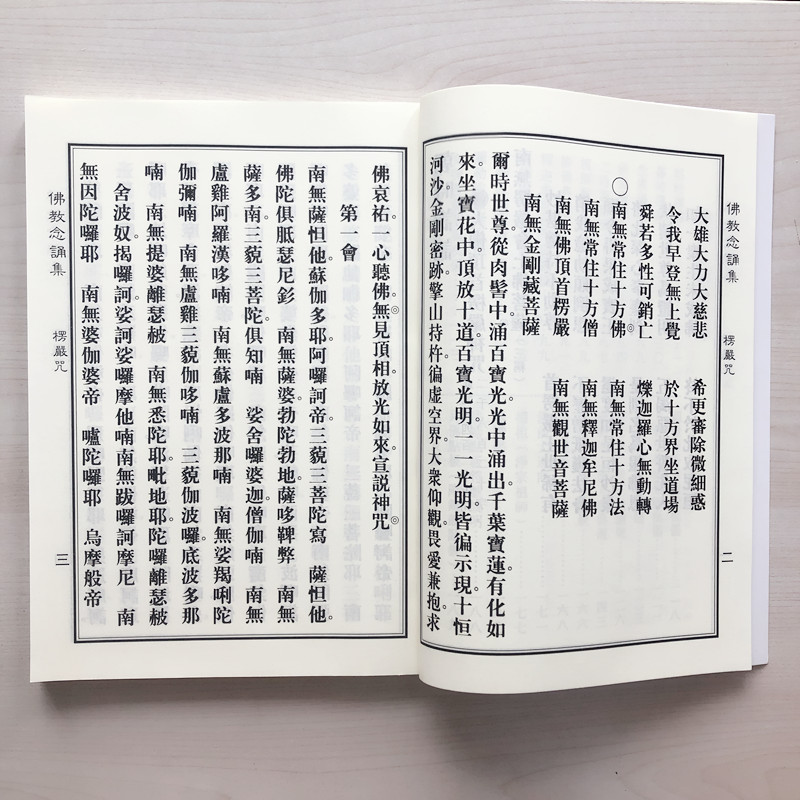 佛教念誦集 楞嚴咒 二
大雄大力大慈悲 希更審除微細惑
令我早登無上覺 於十方界坐道場
舜若多性可銷亡 爍迦羅心無動轉
○南無常住十方佛◎ 南無常住十方法
南無常住十方僧 南無釋迦牟尼佛
南無佛頂首楞嚴 南無觀世音菩薩
南無金剛藏菩薩
爾時世尊。從肉髻中。涌百寶光。光中涌出。千葉寶蓮。有化如
來。坐寶花中。頂放十道。百寶光明。一一光明。皆徧示現。十恒
河沙。金剛密跡。擎山持杵。徧虛空界。大衆仰觀。畏愛兼抱。求
佛哀祐。一心聽佛。◎無見頂相。放光如來。宣說神咒。◎
第一會
南無薩怛他。蘇伽多耶。阿囉訶帝。三藐三菩陀寫 薩怛他。
佛陀俱胝瑟尼釤 南無薩婆。勃陀勃地。薩哆鞞弊 南無
薩多南。三藐三菩陀。俱知喃 娑舍囉婆迦。僧伽喃 南無
盧雞阿羅漢哆喃 南無蘇盧多波那喃 南無娑羯唎陀
伽彌喃 南無盧雞三藐伽哆喃 三藐伽波囉。底波多那
喃 南無提婆離瑟赧 南無悉陀耶。毗地耶。陀囉離瑟赧
舍波奴。揭囉。訶娑訶娑囉摩他喃 南無跋囉訶摩尼 南
無因陀囉耶 南無婆伽婆帝 嚧陀囉耶 烏摩般帝
佛教念誦集 楞嚴咒 三